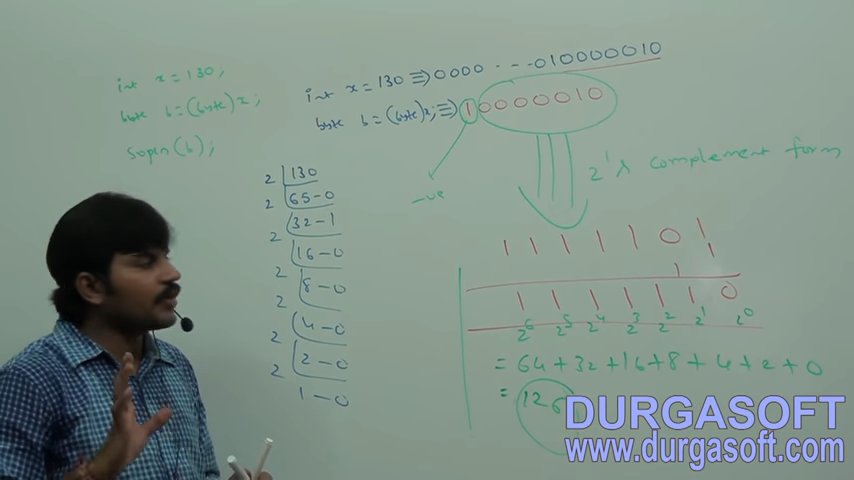 int x = 130;
byte b = (byte) x;
sopln(b);
int x = 130 ⇒ 0000 - - - - 010000010
byte b = (byte) x; ⇒ 10000010
-ve
2's complement form
2 130
2 65 - 0
2 32 - 1
2 16 - 0
2 8 - 0
2 4 - 0
2 2 - 0
1 - 0
1 1 1 1 1 0 1
1
1
1 1 1 1 1 1 0
2⁶ 2⁵ 2⁴ 2³ 2² 2¹ 2⁰
= 64 + 32 + 16 + 8 + 4 + 2 + 0
= 126
DURGASOFT
www.durgasoft.com